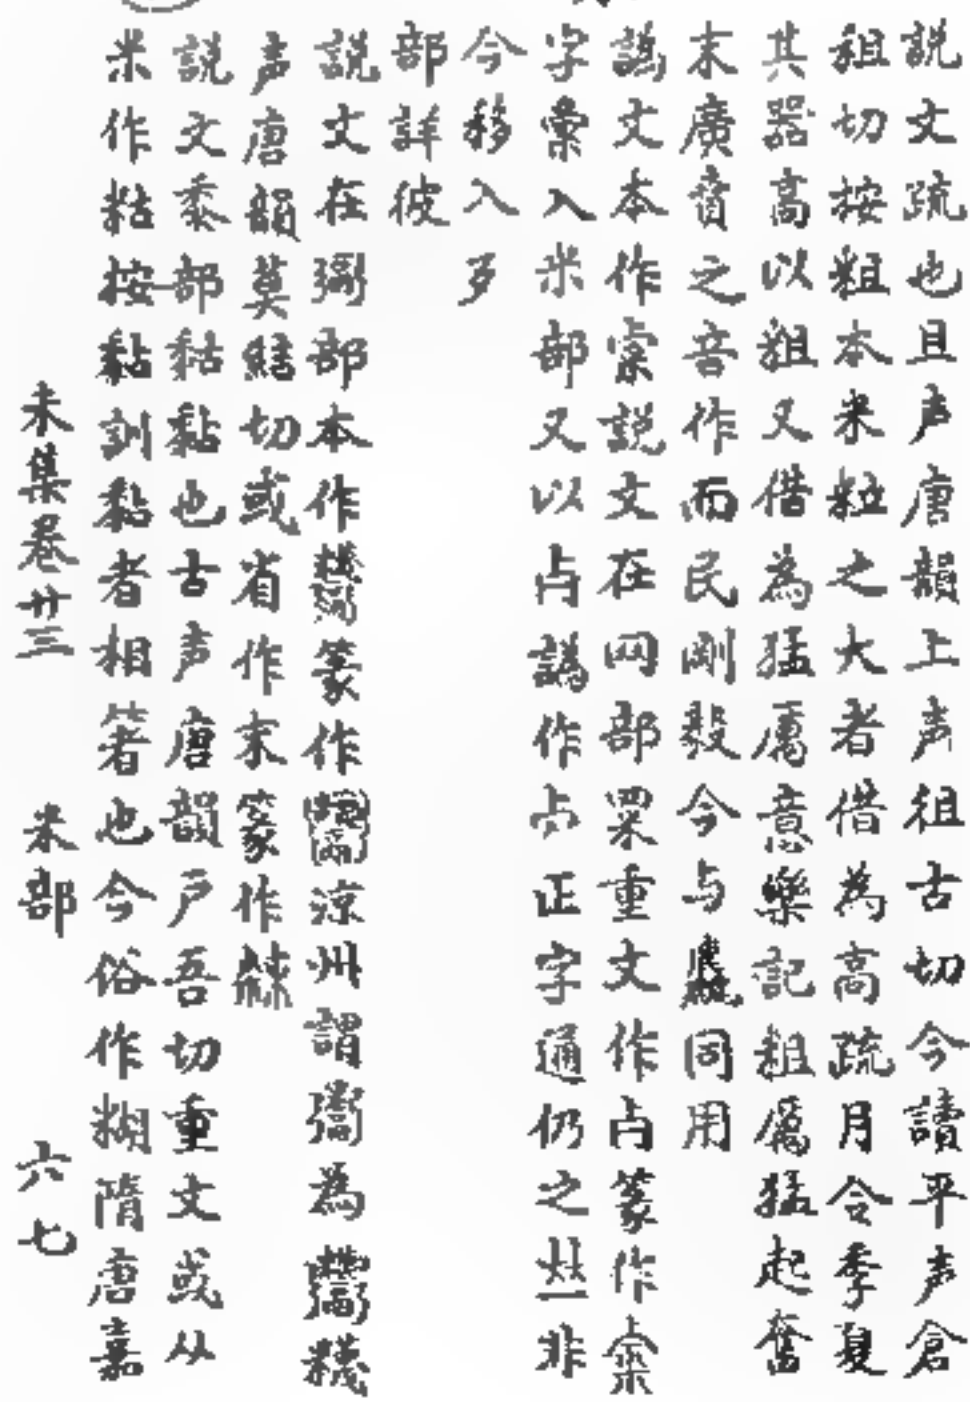 説文疏也且声唐韻上声徂古切今讀平声倉
粗切按粗本米粒之大者借為高疏月令季夏
其器高以粗又借為猛厲意樂記粗厲猛起奮
末廣賁之音作而民剛毅今与麤同用
譌文本作䆘説文在网部罙重文作卢篆作
字彙入米部又以卢譌作卢正字通仍之𠀤非
今移入歹
部詳彼
説文在䰜部本作篆作涼州謂鬻為䭇
声唐韻莫結切或省作末篆作䊳
説文黍部黏黏也古声唐韻戸吾切重文或从
米作粘按黏訓黏者相箸也今俗作糊隋唐嘉
未集卷廿三 米部 六七